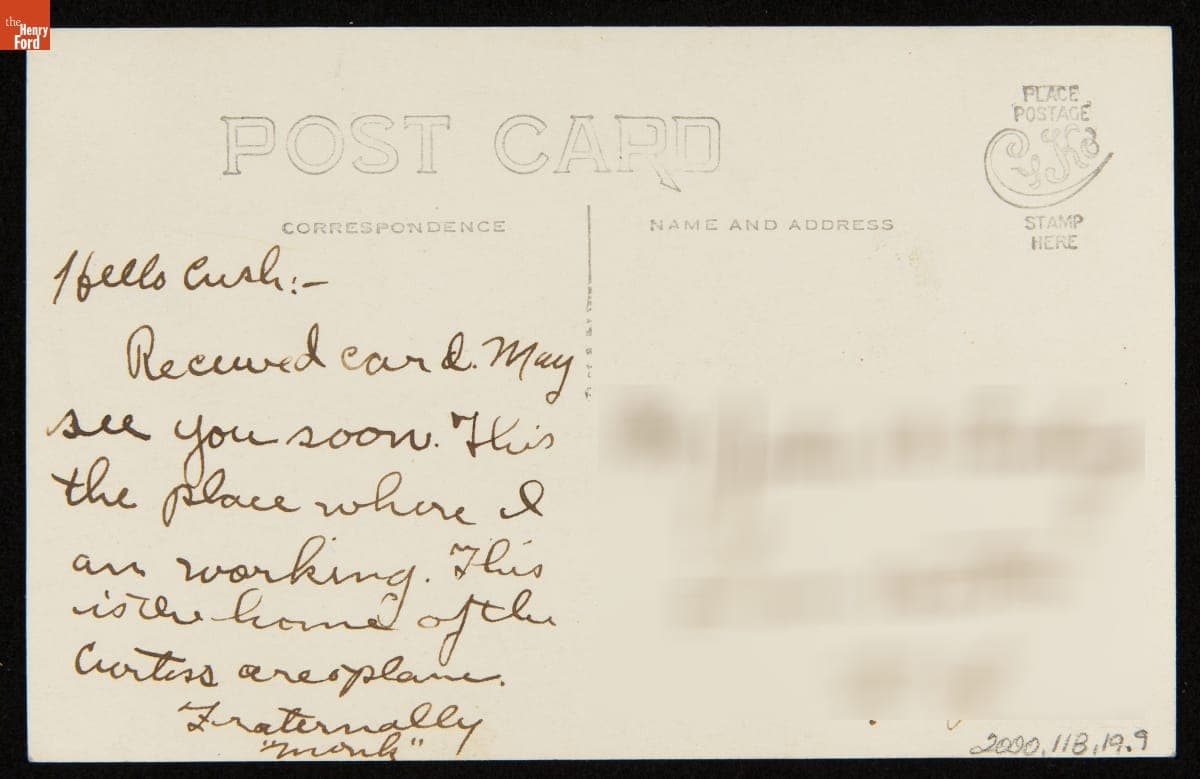 the
Henry
Ford
POST CARD
PLACE
POSTAGE
CYKO
STAMP
HERE
CORRESPONDENCE
NAME AND ADDRESS
Hello Cush:-
Received card. May
see you soon. This
the place where I
am working. This
is the home of the
Curtiss areoplane.
Fraternally
"Monk"
2000.118.19.9